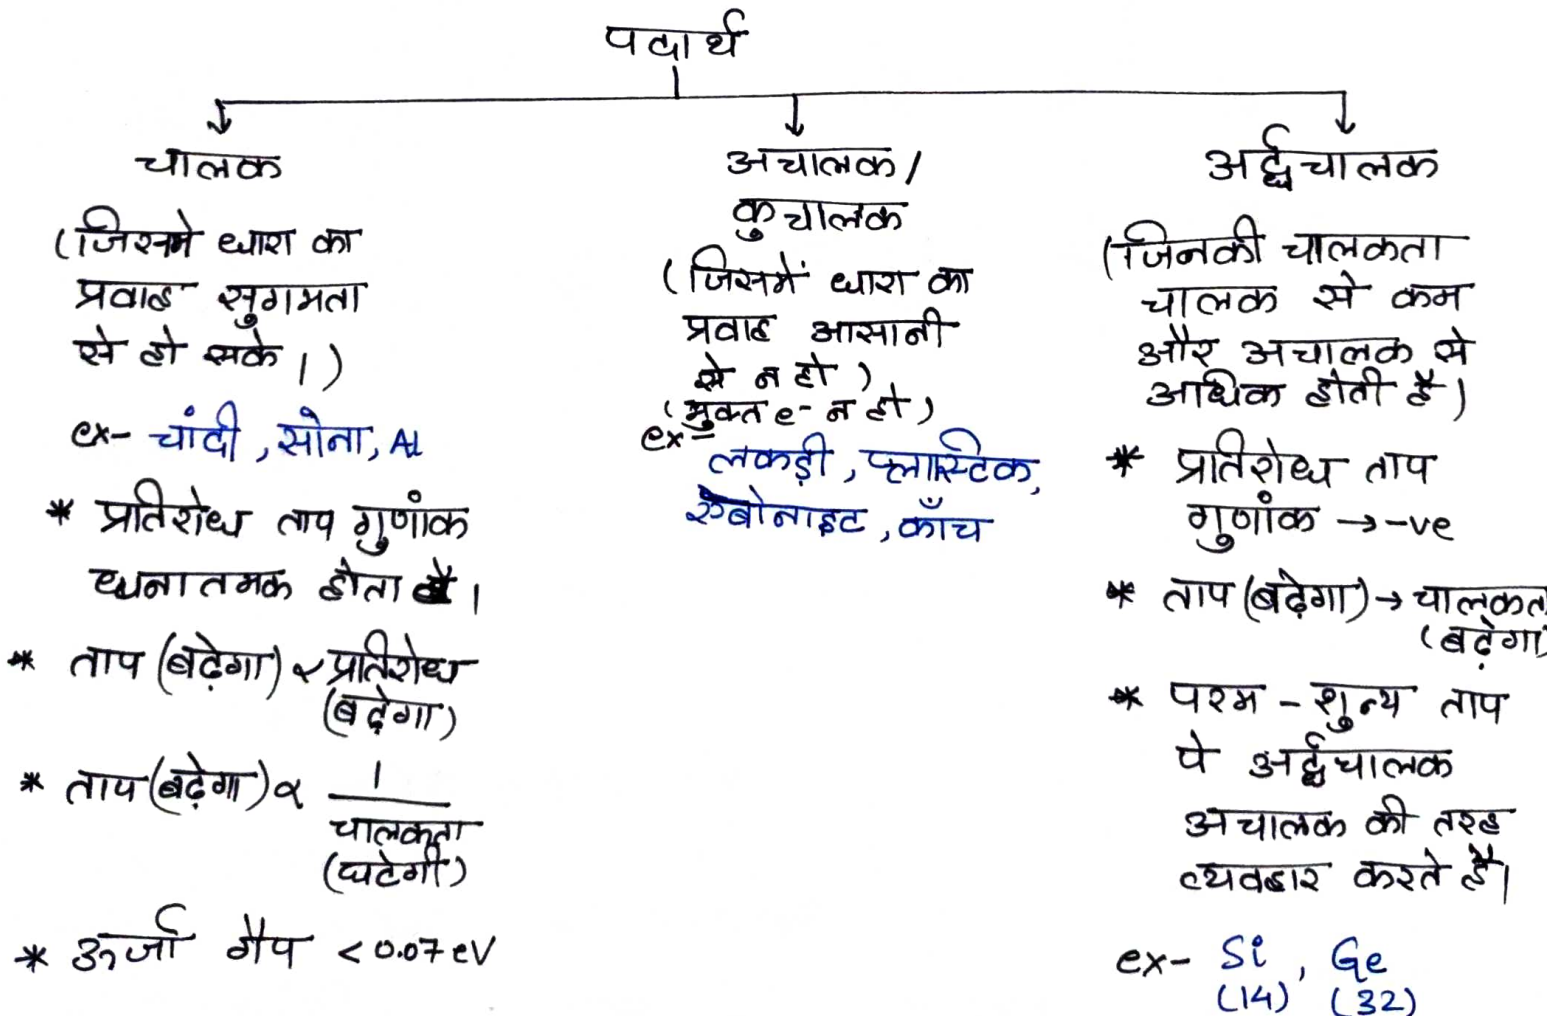 पदार्थ
चालक
(जिसमे धारा का
प्रवाह सुगमता
से हो सके।)
ex- चांदी, सोना, Al
* प्रतिरोध ताप गुणांक
धनातमक होता है।
* ताप (बढ़ेगा) ∝ प्रतिरोध
(बढ़ेगा)
* ताप (बढ़ेगा) ∝ 1
चालकता
(घटेगी)
* ऊर्जा गैप < 0.07 eV
अचालक/
कुचालक
(जिसमें धारा का
प्रवाह आसानी
से न हो)
(मुक्त e- न हो)
ex-
लकड़ी, प्लास्टिक,
एबोनाइट, काँच
अर्द्धचालक
(जिनकी चालकता
चालक से कम
और अचालक से
अधिक होती है)
* प्रतिरोध ताप
गुणांक → -ve
* ताप (बढ़ेगा) → चालकता
(बढ़ेगा)
* परम - शुन्य ताप
पे अर्द्धचालक
अचालक की तरह
व्यवहार करते है।
ex- Si, Ge
(14) (32)